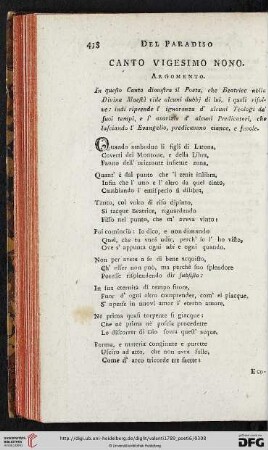 458 DEL PARADISO
CANTO VIGESIMO NONO.
ARGOMENTO.
In questo Canto dimostra il Poeta, che Beatrice nella
Divina Maestà vide alcuni dubbj di lui, i quali risol-
ve: indi riprende l' ignoranza d' alcuni Teologi de'
suoi tempi, e l' avarizia d' alcuni Predicatori, che
lasciando l' Evangelio, predicavano ciance, e favole.
Quando ambedue li figli di Latona,
Coverti del Montone, e della Libra,
Fanno dell' orizzonte insieme zona,
Quant' è dal punto che 'l tiene inlibra,
Infin che l' uno e l' altro da quel cinto,
Cambiando l' emisperio si dilibra,
Tanto, col volto di riso dipinto,
Si tacque Beatrice, riguardando
Fisso nel punto, che m' aveva vinto:
Poi cominciò: Io dico, e non dimando
Quel, che tu vuoi udir, perch' io l' ho visto,
Ove s' appunta ogni ubi e ogni quando,
Non per avere a se di bene acquisto,
Ch' esser non può, ma perchè suo splendore
Potesse risplendendo dir sussisto:
In sua eternità di tempo fuore,
Fuor d' ogni altro comprender, com' ei piacque,
S' aperse in nuovi amor l' eterno amore,
Nè prima quasi torpente si giacque:
Che nè prima nè poscia procedette
Lo discorrer di Dio sovra quest' acque.
Forma, e materia congiunte e purette
Usciro ad atto, che non avea fallo,
Come d' arco tricorde tre saette:
E co-
http://digi.ub.uni-heidelberg.de/diglit/
© Universitätsbibliothek Heidelberg